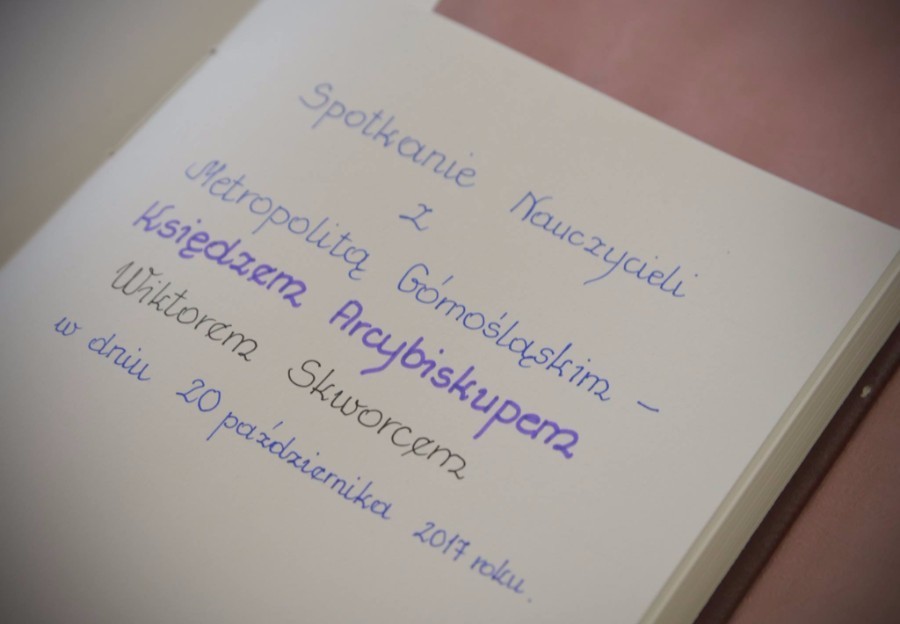 Spotkanie Nauczycieli
z
Metropolitą Górnośląskim –
Księdzem Arcybiskupem
Wiktorem Skworcem
w dniu 20 października 2017 roku.